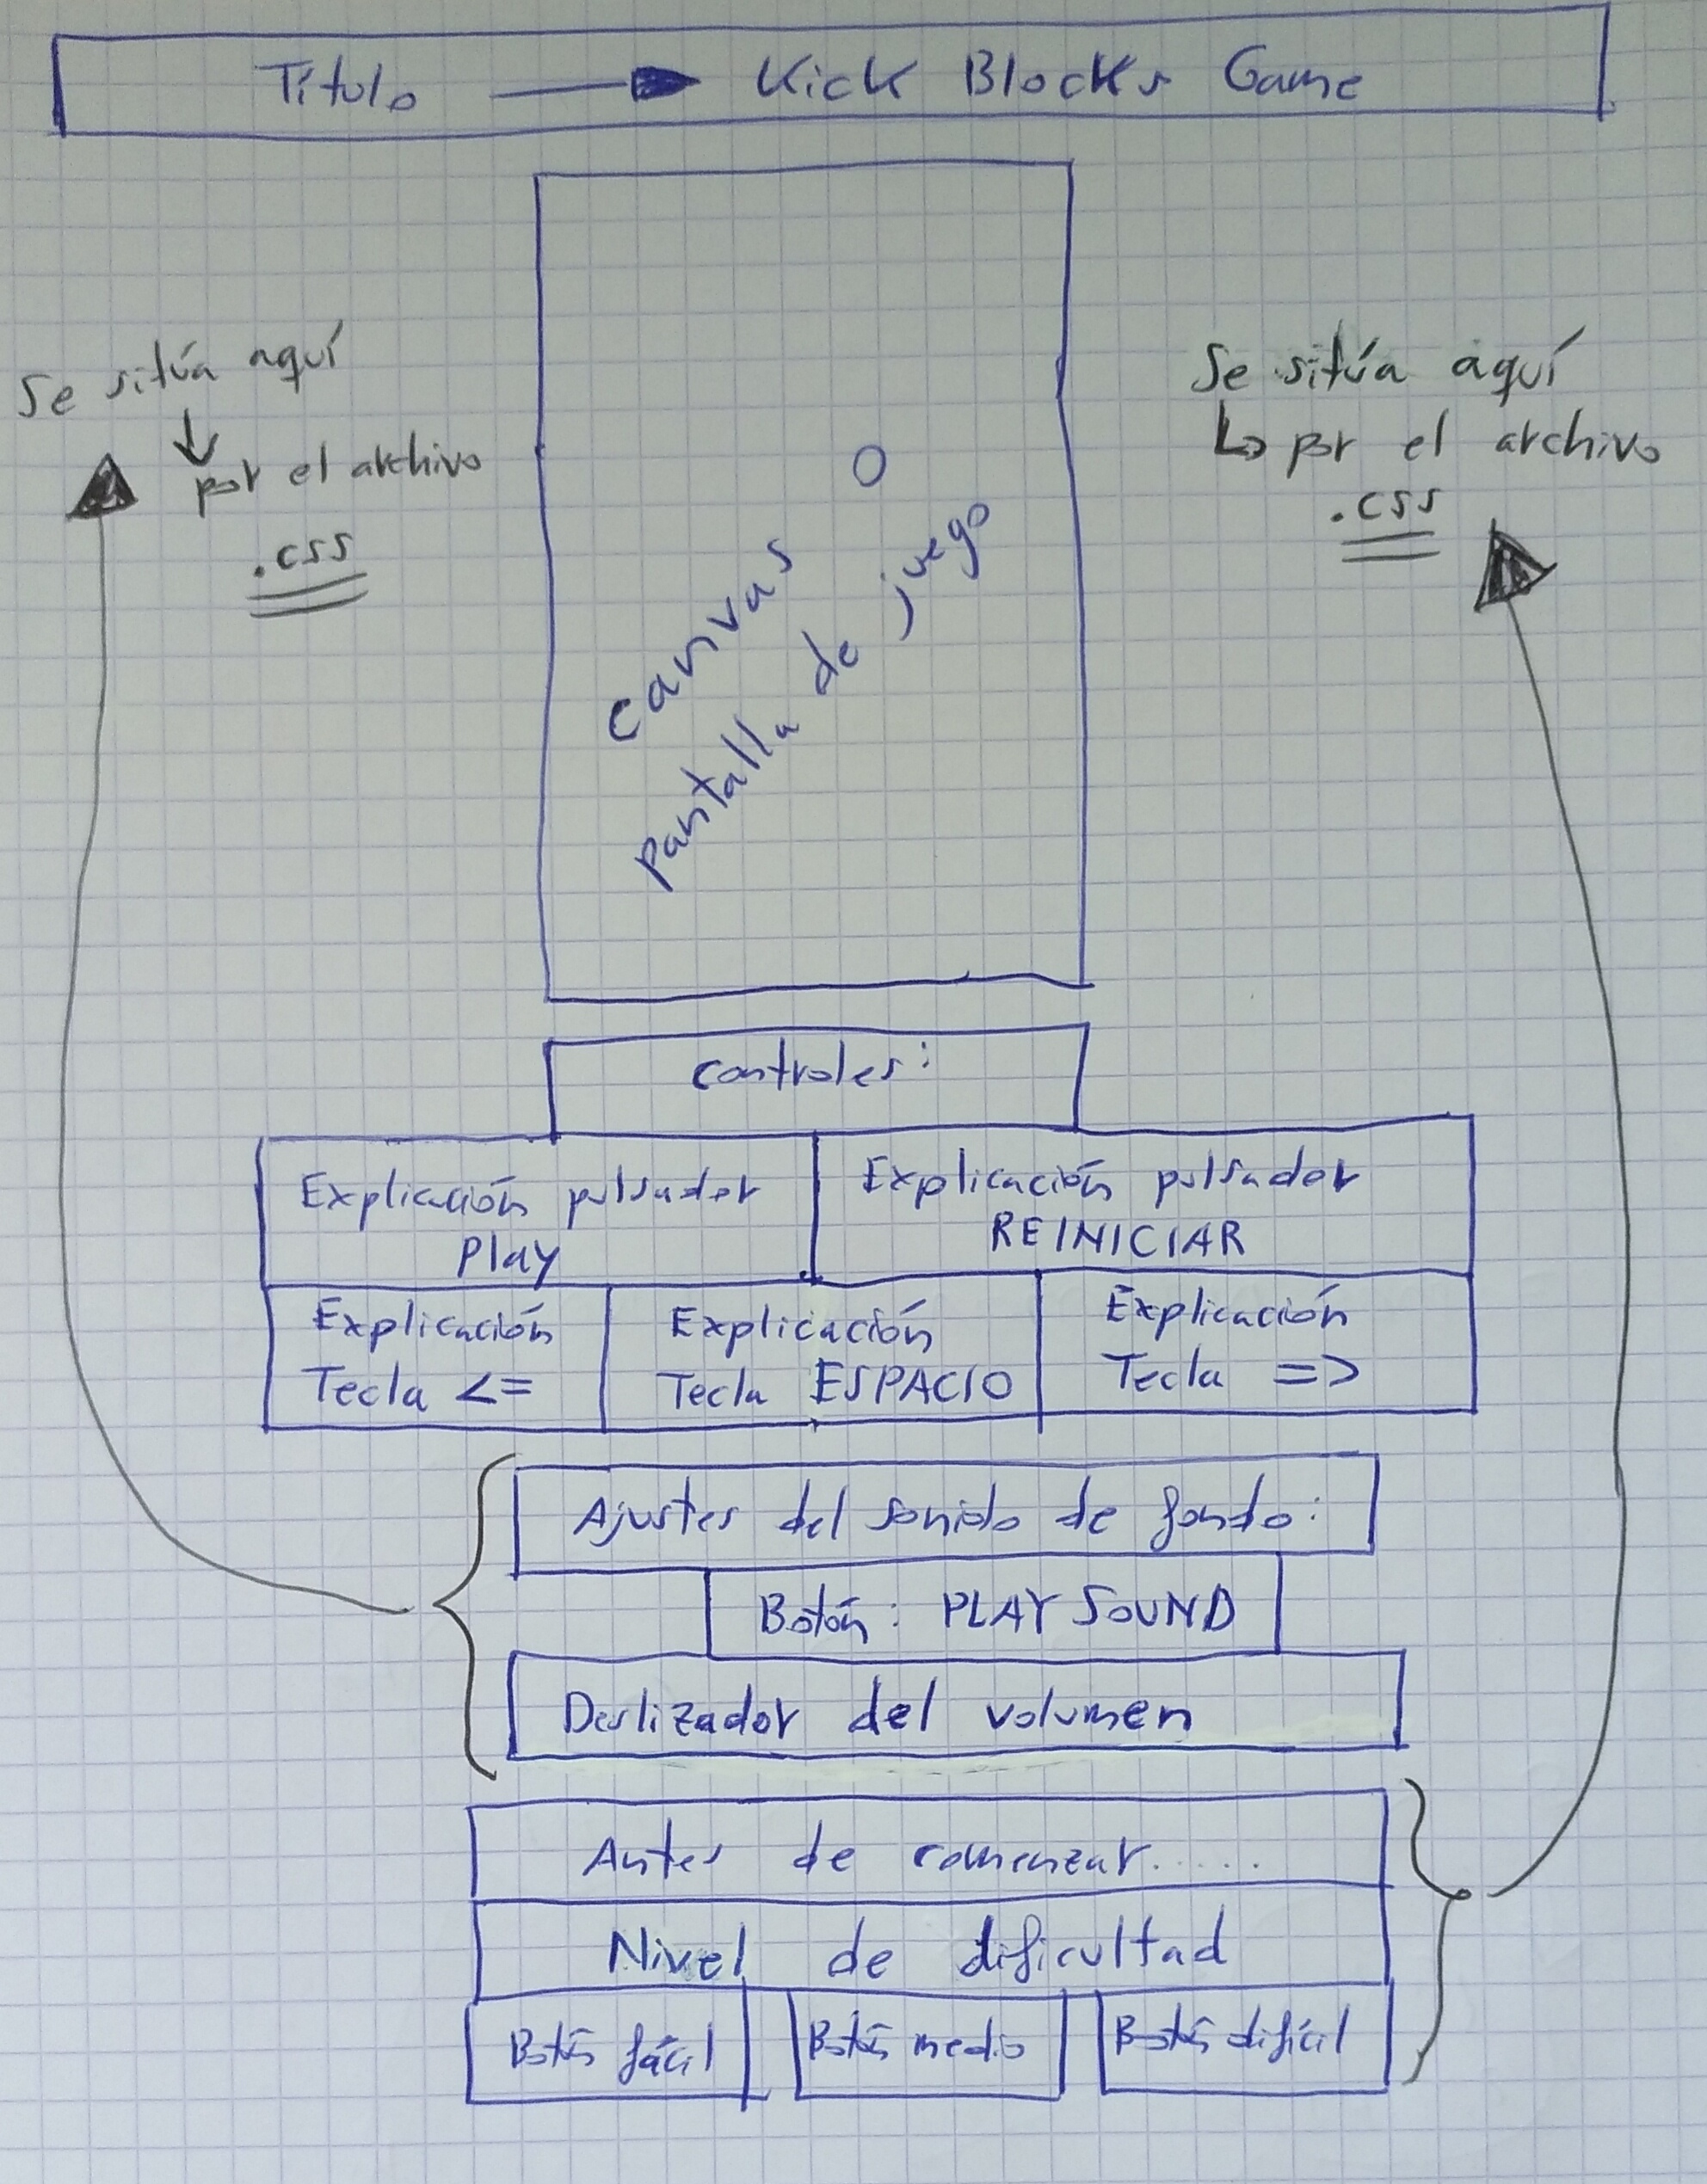 Título → Kick Blocks Game
Se sitúa aquí
↓
por el archivo
.css
Se sitúa aquí
↳ por el archivo
.css
canvas
o
pantalla de juego
controles:
Explicación pulsador
Play
Explicación pulsador
REINICIAR
Explicación
Tecla <=
Explicación
Tecla ESPACIO
Explicación
Tecla =>
Ajustes del sonido de fondo:
Botón: PLAY SOUND
Deslizador del volumen
Antes de comenzar.....
Nivel de dificultad
Botón fácil
Botón medio
Botón difícil